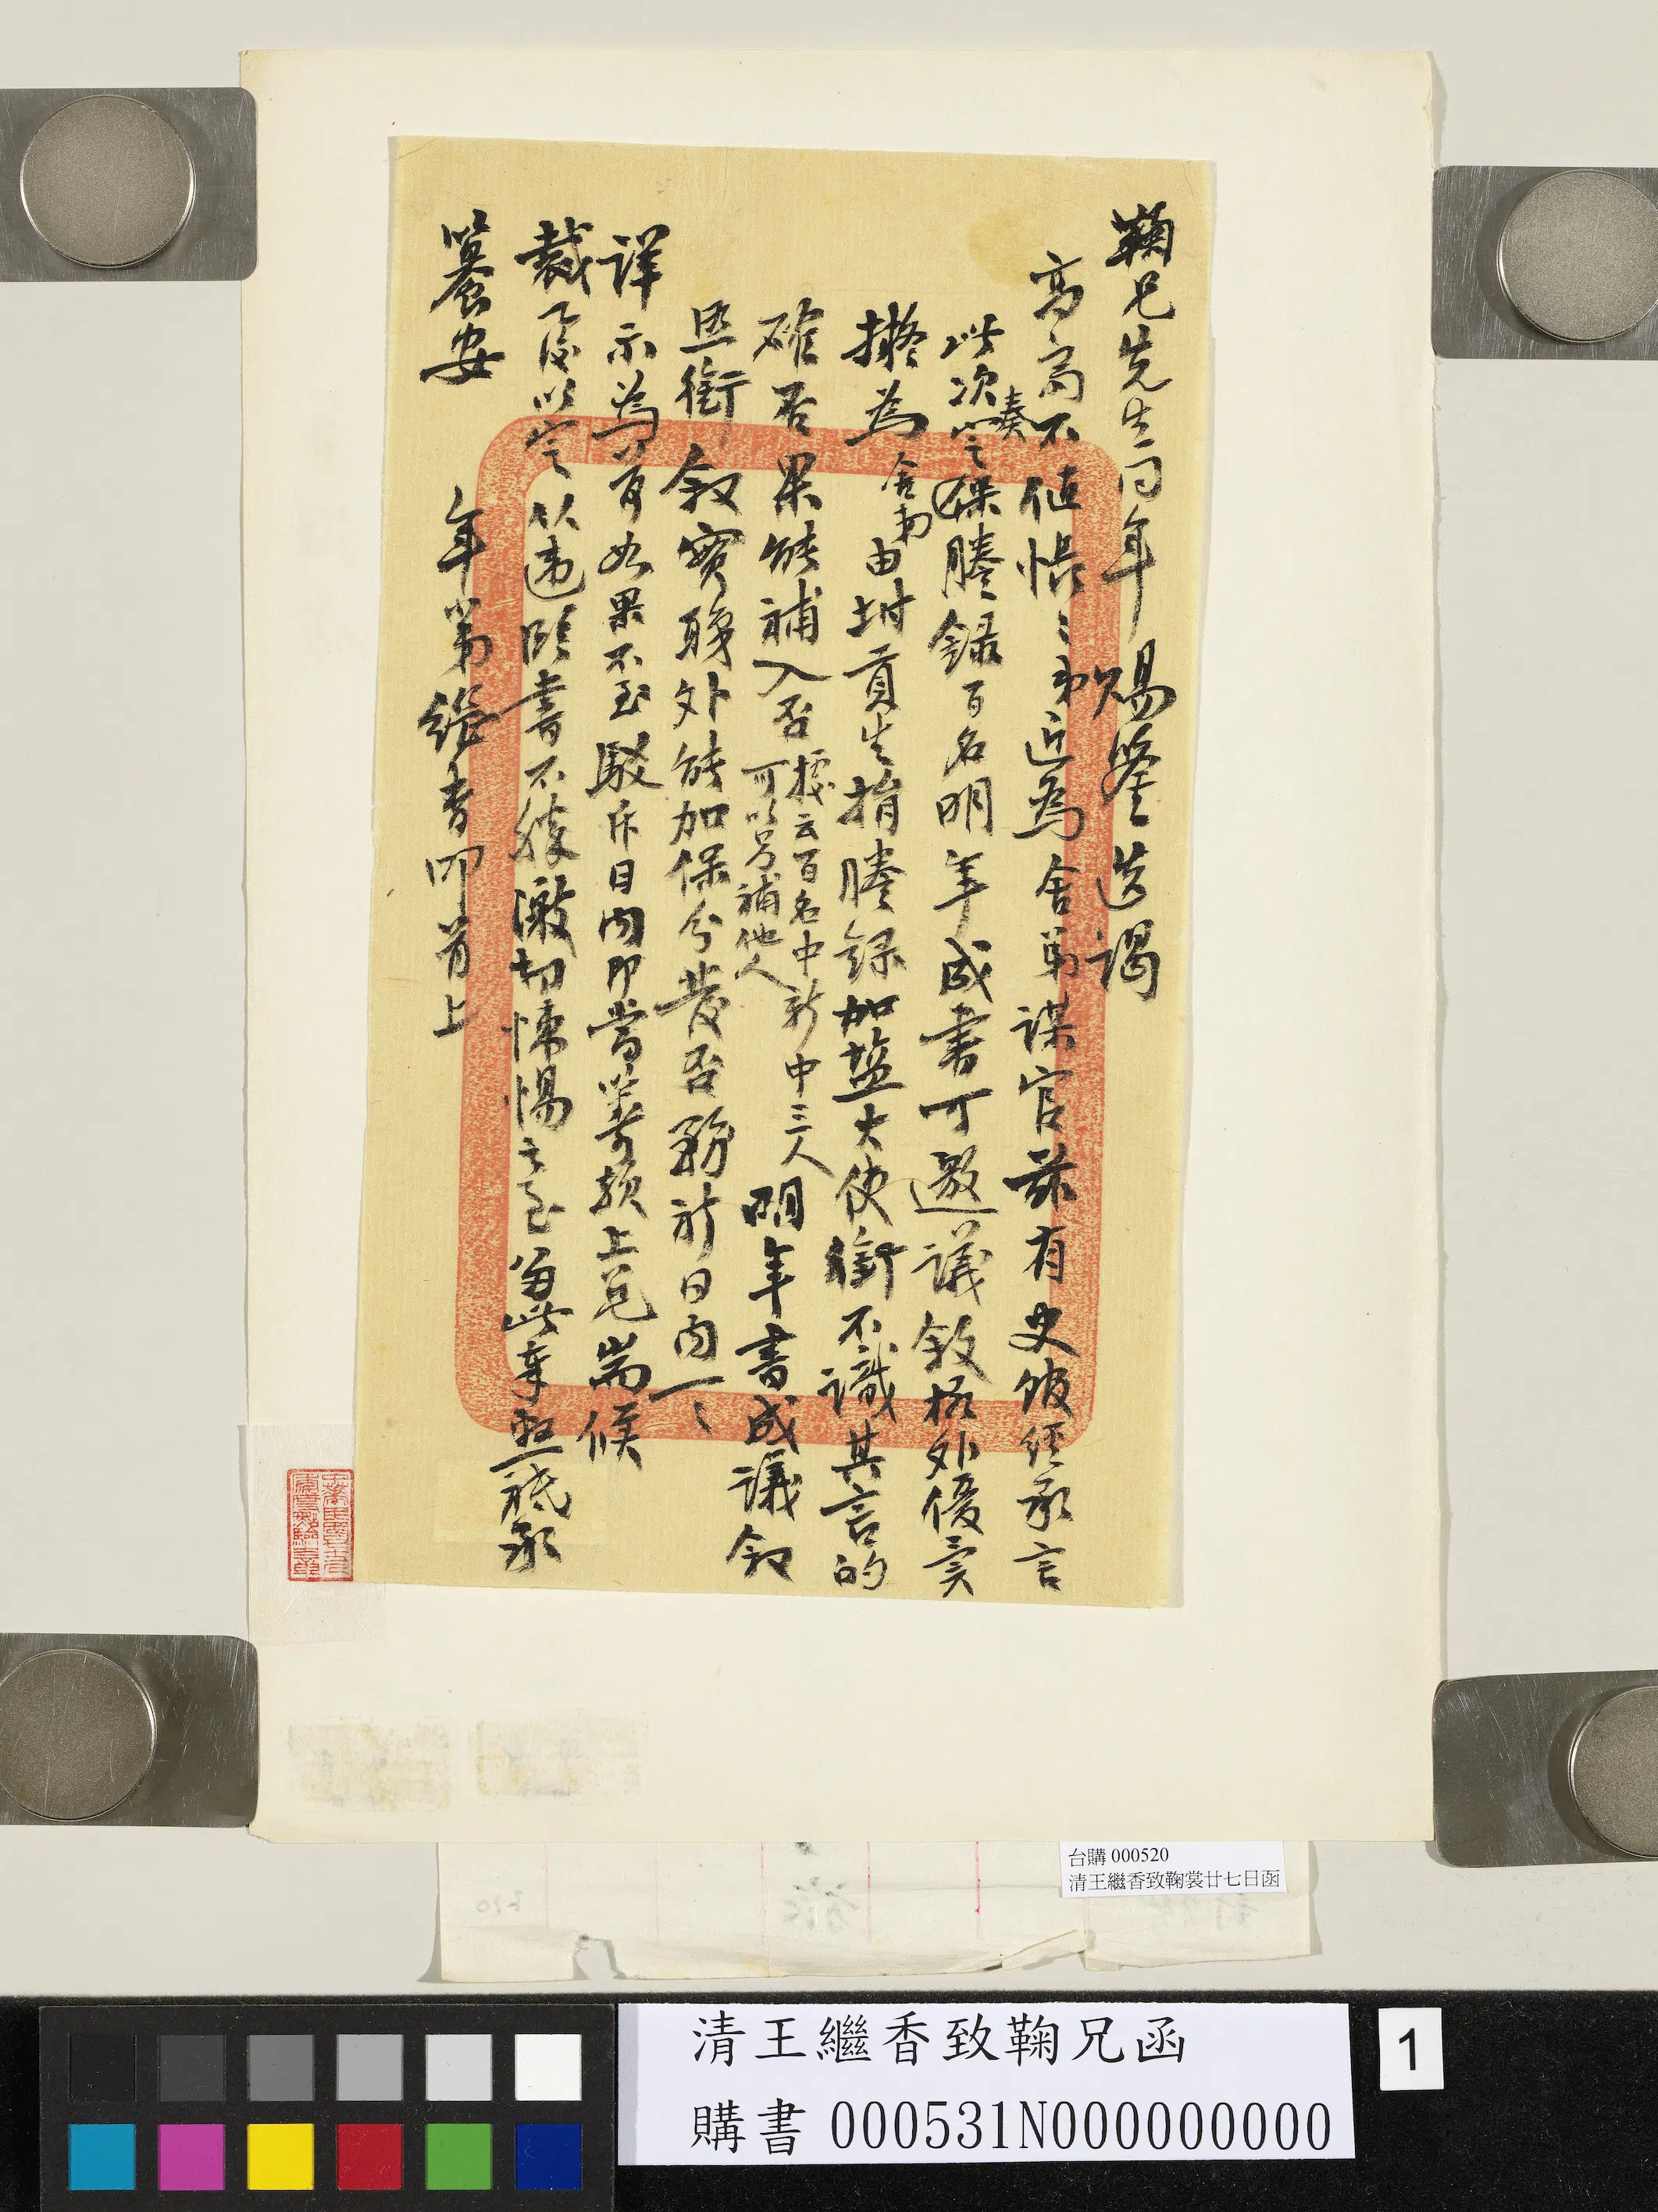 鞠兄先生同年賜鑒迭謁
高齋不值悵〻弟近為舍弟謀官茲有史館經承言
此次奏定保謄錄百名明年成書可邀議敘格外優異
擬為舍弟由附貢生捐謄錄加鹽大使銜不識其言的
確否果能補入否據云百名中新中三人可以另補他人明年書成議敘
照銜敘實職外能加保分發否務祈日內一〻
詳示為荷如果不至駁斥日內即當籌款上兌耑候
裁復以定從違臨書不勝激切悚惕之至專此奉懇祗承
籑安
年弟繼香叩首上
台購 000520
清王繼香致鞠裳廿七日函
清王繼香致鞠兄函
購書 000531N000000000
1